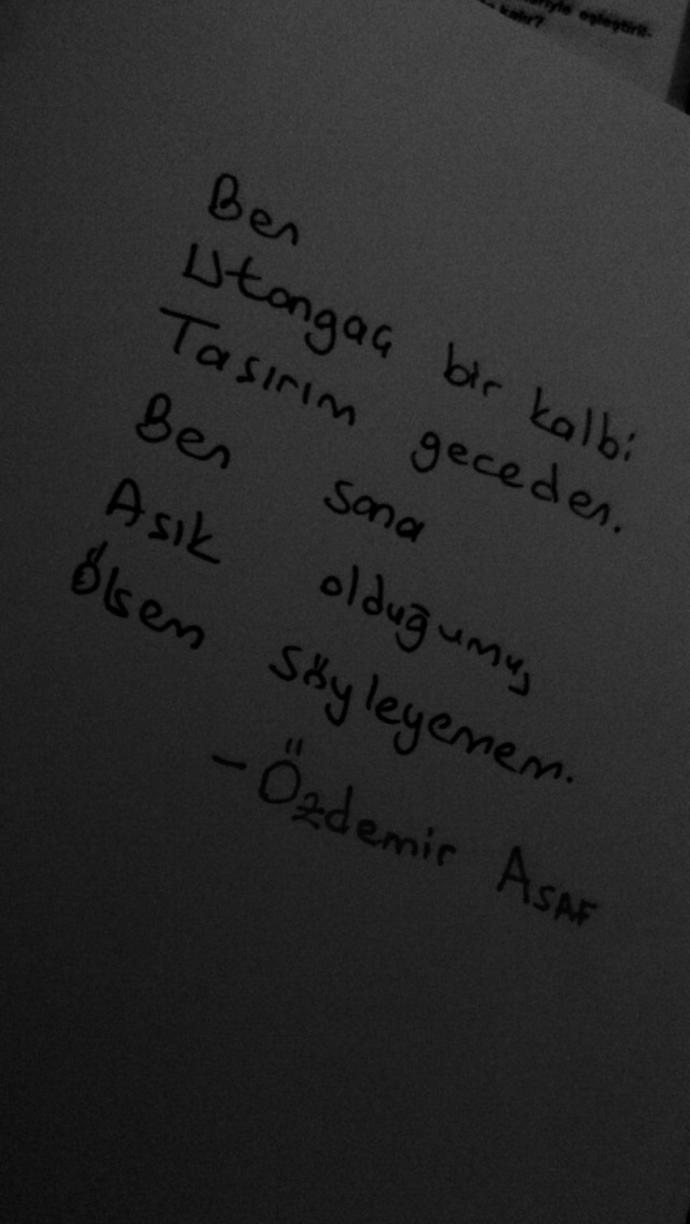 -ariyle eşleştiril-
kalır?
Ben
Utangaç bir kalbi
Tasırım geceden.
Ben sana
Asık olduğumu,
Ölsem söyleyemem.
- Özdemir ASAF